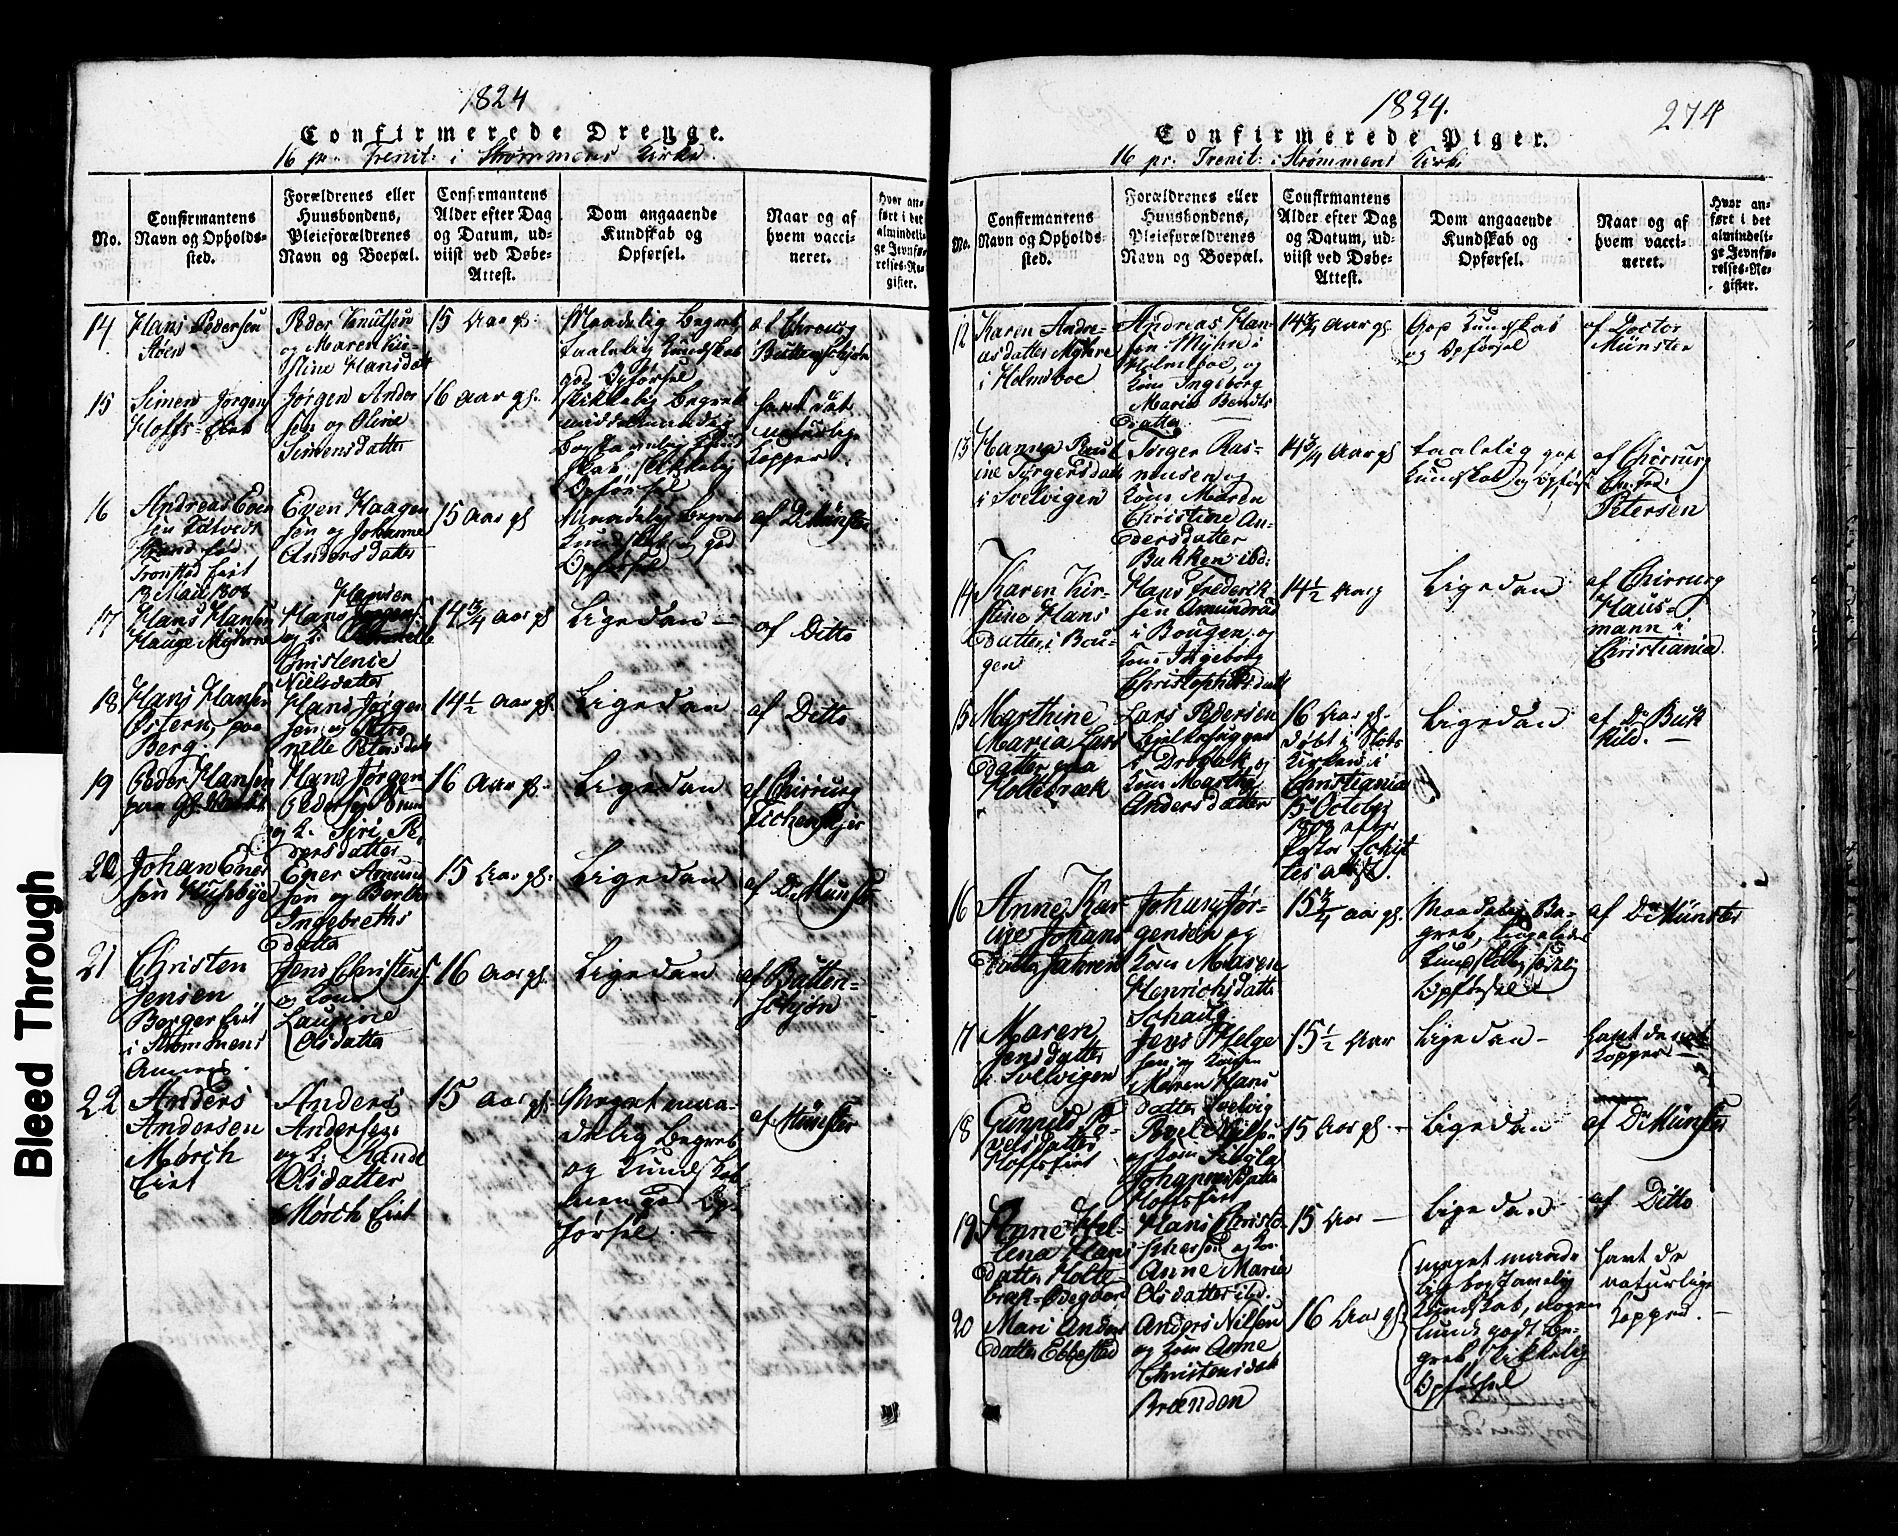 Bleed Through
1824
Confirmerede Drenge.
16 p. Trenit: i Strømmens Kirke.
No.
Confirmantens
Navn og Opholds-
sted.
Forældrenes eller
Huusbondens,
Pleieforældrenes
Navn og Boepæl.
Confirmantens
Alder efter Dag
og Datum, ud-
viist ved Døbe-
Attest.
Dom angaaende
Kundskab og
Opførsel.
Naar og af
hvem vacci-
neret.
Hvor an-
ført i det
almindeli-
ge Jevnfø-
relses-Re-
gister.
14
Hans Pedersen
Støen
Peder Knutsen
og Maren Kir-
stine Hansdatt
15 Aar gl:
Maadelig Begreb
taalelig Kundskab
god Opførsel
af Chirurg
15
Simen Jørgens
Hoffs-Eiet
Jørgen Ander
sen og Oline
Simensdatter
16 Aar gl.
Opførsel
havt de
naturlige
Kopper
16
Andreas Even
sen
født
Tronstad Eiet
1808
Even Haagen
sen og Johanne
Andersdatter
15 Aar gl
Maadelig Begreb
Kundskab og god
Opførsel
af D. Münster
17
Hans Hansen
Hauge Myhrene
Hansen
Hans Jørgen
og K.
Christenie
Nielsdatter
14 3/4 Aar gl
Ligedan —
af Ditto
18
Hans Hansen
Østern paa
Berg.
Hans Jørgen
sen og Petro
nille Petersdatt
14 1/2 Aar gl.
Ligedan
af Ditto
19
Peder Hansen
paa
Hans Jørgen
Pedersen
og K. Siri Pe
dersdatter
16 Aar gl.
Ligedan
af Chirurg
20
Johan Ener
sen
Ener Amund
sen og Berthe
Ingebreths
datter
15 Aar gl.
Ligedan
af D. Münster
21
Christen
Jensen
Berger Eiet
i Strømmens
Annex.
Jens Christens.
og Kone
Laurine
Olsdatter
16 Aar gl.
Ligedan
af Butten-
schjøn
22
Anders
Andersen
Mørch
Eiet
Anders
Andersen
og K. Randi
Olsdatter
Mørch Eiet
15 Aar gl.
Meget maa-
delig Begreb
og Kundskab
men god Op-
førsel. —
af Münster
1824.
274
Confirmerede Piger.
16 pr. Trenit: i Strømmens Kirke
No.
Confirmantens
Navn og Opholds-
sted.
Forældrenes eller
Huusbondens,
Pleieforældrenes
Navn og Boepæl.
Confirmantens
Alder efter Dag
og Datum, ud-
viist ved Døbe-
Attest.
Dom angaaende
Kundskab og
Opførsel.
Naar og af
hvem vacci-
neret.
Hvor an-
ført i det
almindeli-
ge Jevnfø-
relses-Re-
gister.
12
Karen Andre-
asdatter Myhre
i Holmsboe
Andreas Han-
sen Myhre i
Holmsboe, og
Kone Ingeborg
Maria Bendts
datter
14 3/4 Aar gl
God Kundskab
og Opførsel
af Doctor
Münster
13
Hanna Paul
ine Jørgersdatt
i Svelvigen
Jørger Ras-
mussen og
Kone Maren
Christine An-
dersdatter
Bakken ibd:
14 3/4 Aar gl
taalelig god
Kundskab og Opførsel
af Chirurg
Petersen
14
Karen Kir-
stine Hans
datter i Bou-
gen
Hans Frederik
sen Amundrud
i Bougen og
Kone Ingeborg
Christophersdatt
14 1/2 Aar g
Ligedan
af Chirurg
Haus-
mann i
Christiania.
15
Marthine
Maria Lars
datter paa
Holtebræk
Lars Pedersen
i Drøbak, og
Kone Marthe
Andersdatter
16 Aar gl.
døbt i Slots
Kirken i
Christiania
15 October
1808 efter
Pastor
Attest.
Ligedan
af D. Buk
hild. —
16
Anne Kar
ine Johans
datter Jahren
Johan Jør-
gensen og
Kone Maren
Henrichsdatter
Schaug.
15 3/4 Aar gl
Maadelig Be-
greb,
Kundskab,
Opførsel
af D. Münster
17
Maren
Jensdatter
i Svelvigen
Jens Helge
sen og Konen
Maren Hans
datter Svelvig
15 1/2 Aar
Ligedan —
havt de nat
Kopper —
18
Gunnild Po-
velsdatter
Hoffseiet
Povel Nilsen
og Kone
Johannesdatter
Hoffseiet
15 Aar gl. —
Ligedan
af D. Münster
19
Anne Hel-
lena Hans
datter Holte
bræk-Ødegaard
Hans Christo
phersen og Kone
Anne Maria
Olsdatter ibd.
15 Aar —
Ligedan
af Ditto
20
Mari Anders
datter Ebbestad
Anders Nilsen
og Kone Anne
Christensdatt
Brænden
16 Aar gl.
meget maade
lig bogstavelig
Kundskab, nogen
lunde godt Be-
greb, skikkelig
Opførsel
havt de
naturlige
Kopper. —